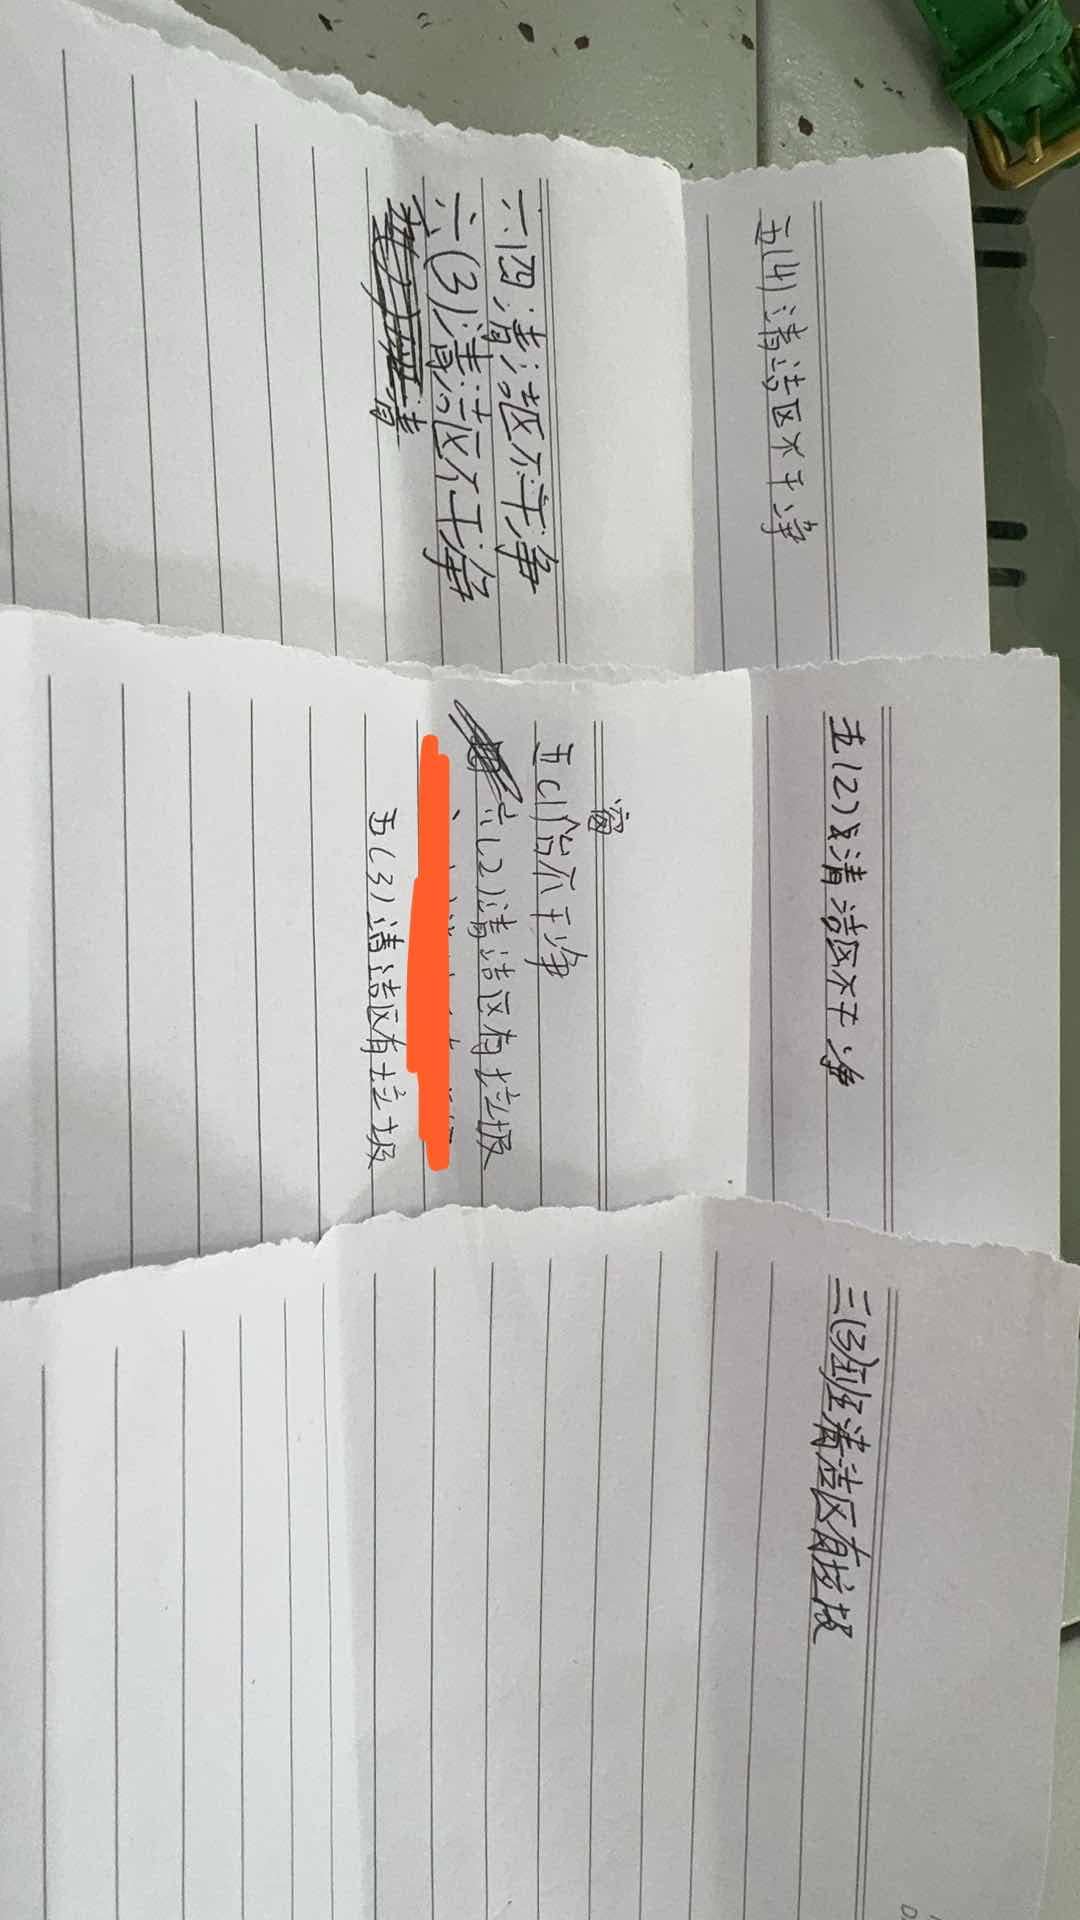 五(4)清洁区不干净
一(四清洁区不干净
六(3)清洁区不干净
五(2)清洁区不干净
窗
五(1)台不干净
六(2)清洁区有垃圾
五(3)清洁区有垃圾
三(3)班清洁区有垃圾